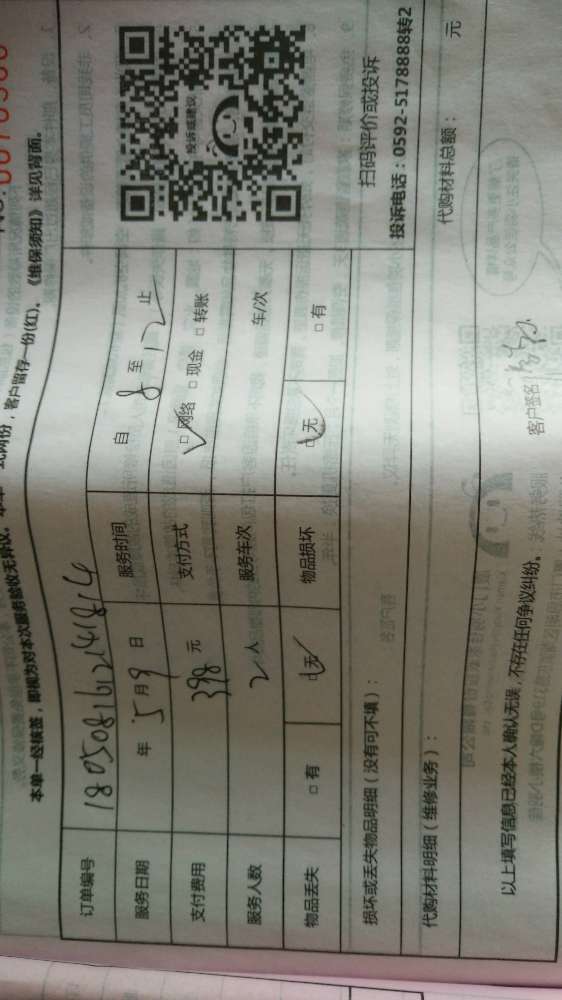 本单一经核签，即视为对本次服务验收无异议。
客户留存一份(红)。《维保须知》详见背面。
订单编号 1805081612141814
服务日期 年 5月9日 服务时间 自 8 至 12 止
支付费用 398 元 支付方式 ☑网络 □现金 □转账
服务人数 2人 服务车次 车/次
物品丢失 □有 ☑无 物品损坏 ☑无 □有
投诉或建议
扫码评价或投诉
投诉电话：0592-5178888转2
损坏或丢失物品明细（没有可不填）：
代购材料明细（维修业务）： 代购材料总额： 元
以上填写信息已经本人确认无误，不存在任何争议纠纷。 客户签名